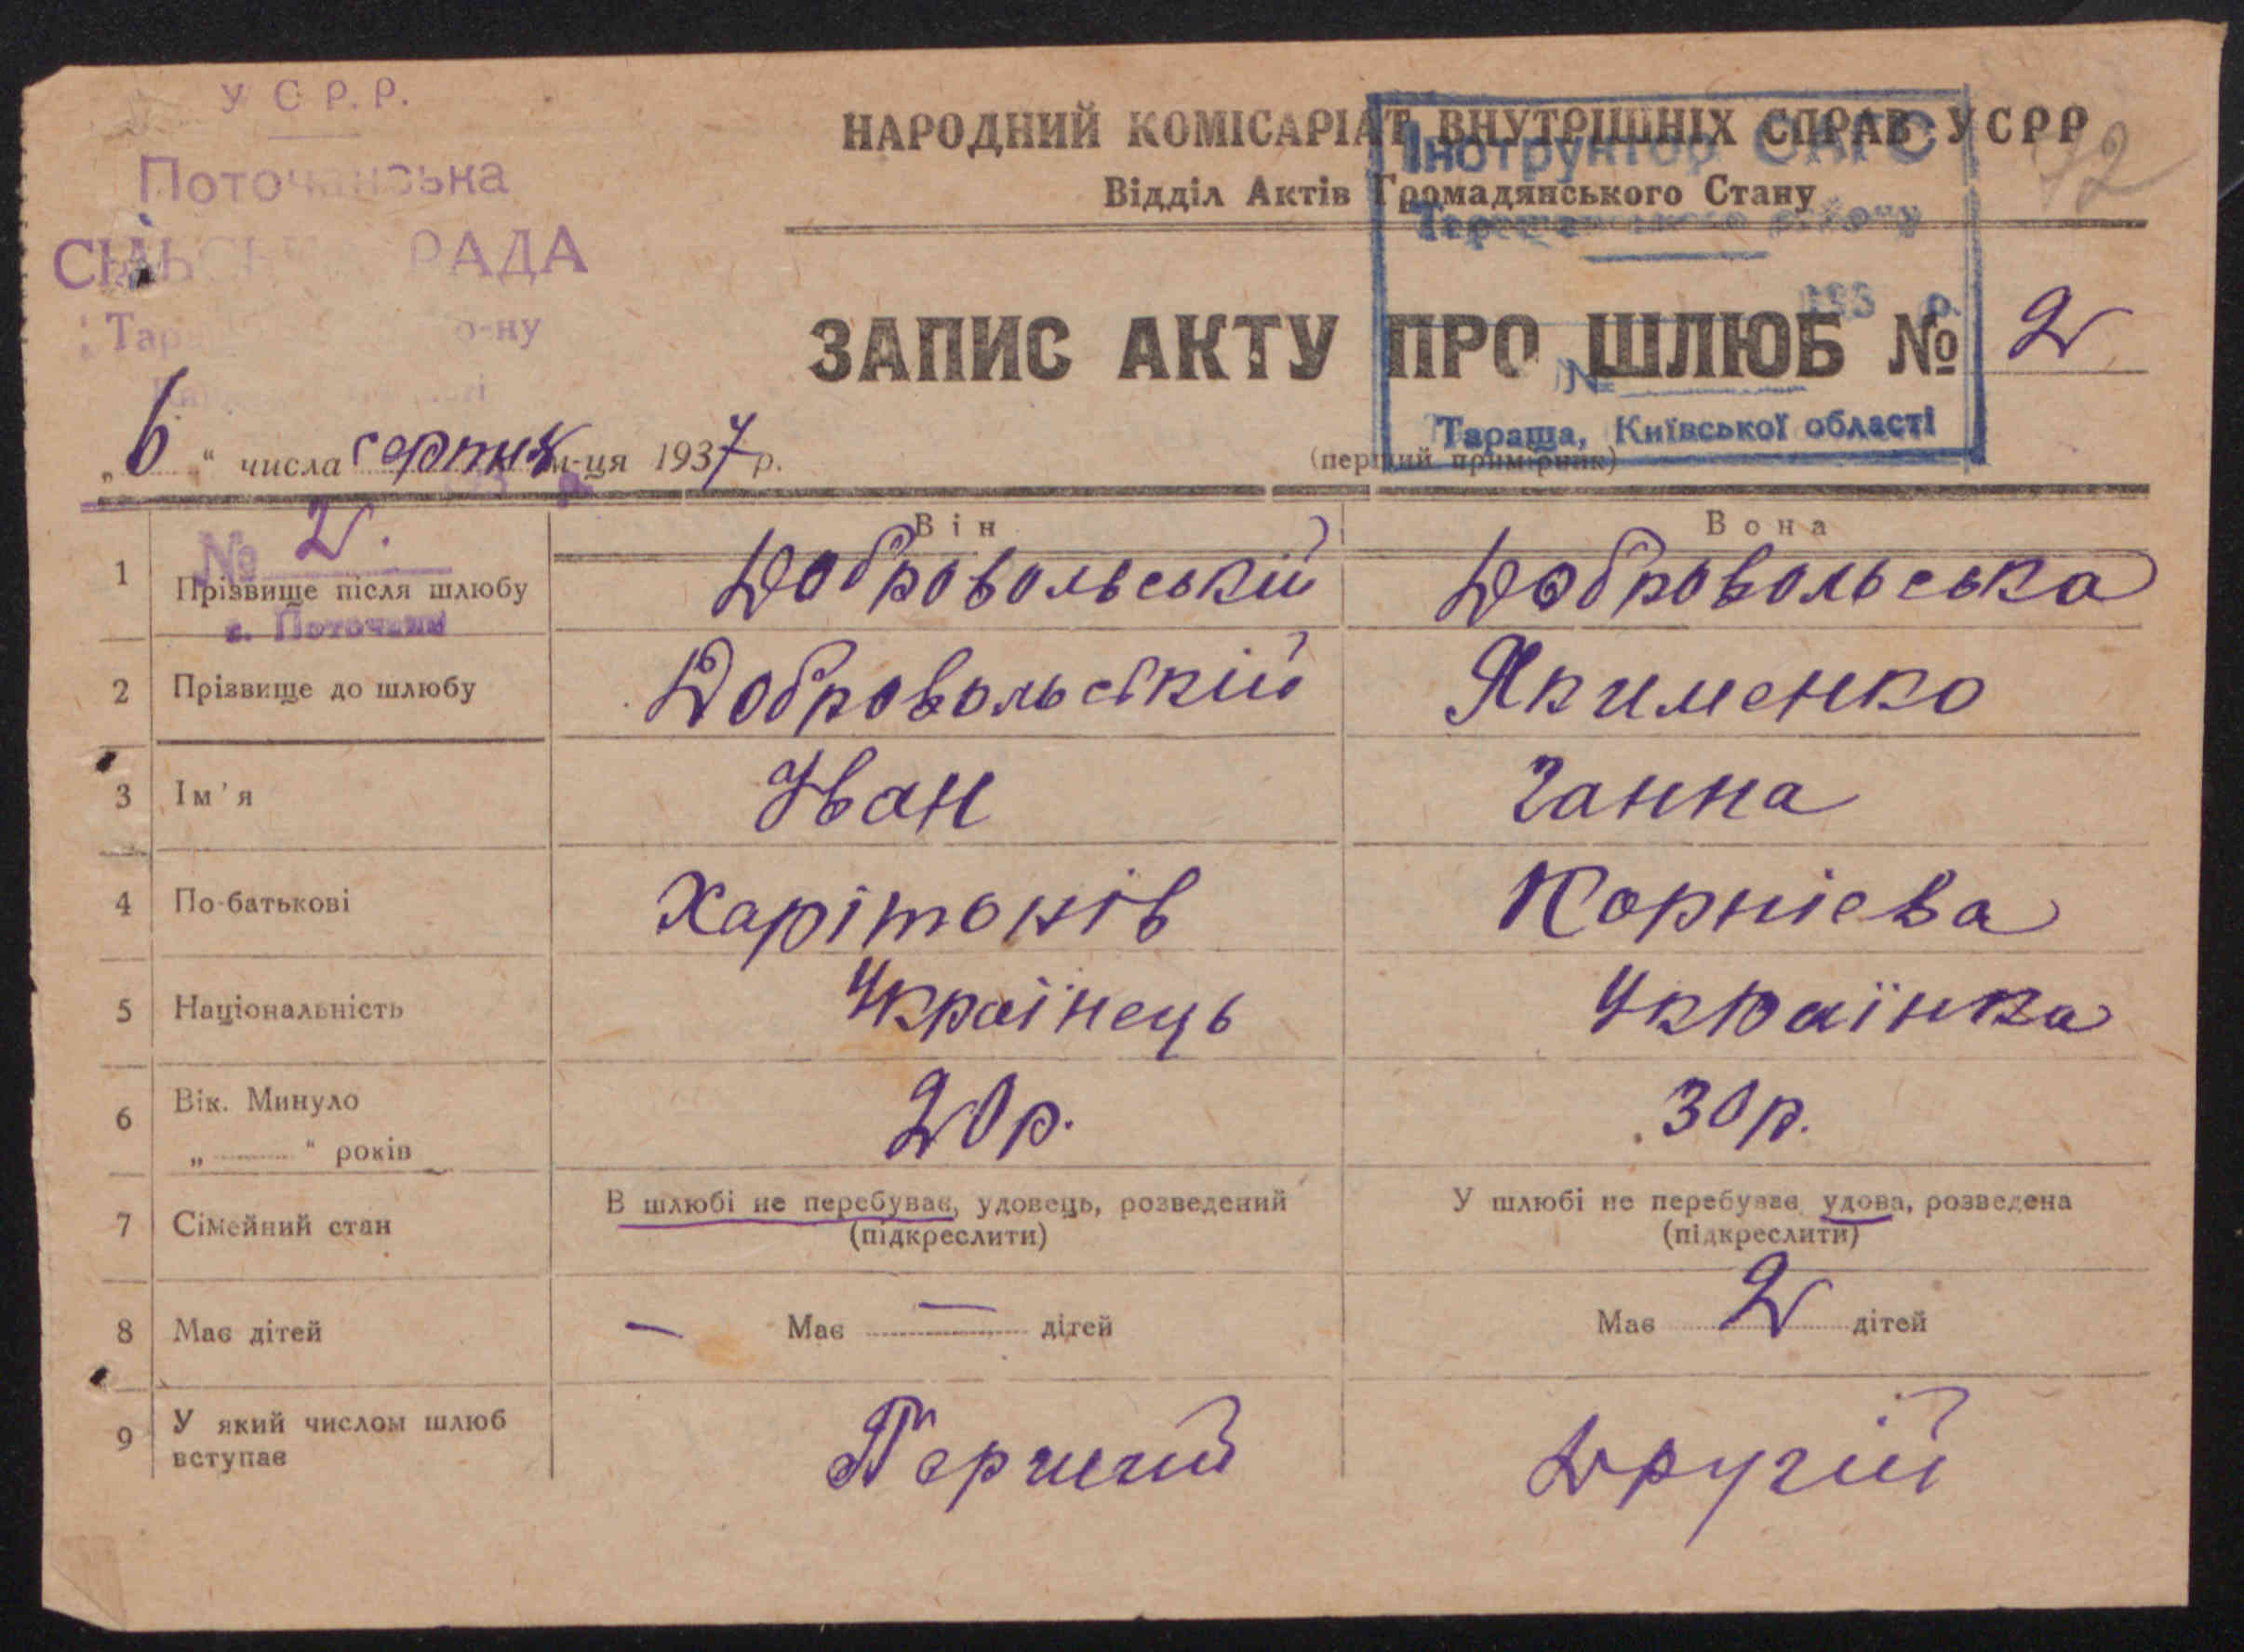 У С Р. Р.
Поточанська
СІЛЬСЬКА РАДА
о-ну
НАРОДНИЙ КОМІСАРІАТ ВНУТРІШНІХ СПРАВ УСРР
Відділ Актів Громадянського Стану
Інструктор ЗАГС
Таращанського району
193 р.
№
Тараща, Київської області
72
ЗАПИС АКТУ ПРО ШЛЮБ № 2
(перший примірник)
„6“ числа серпня м-ця 1937 р.
№ 2.
с. Поточани
Він Вона
1 Прізвище після шлюбу Добровольській Добровольська
2 Прізвище до шлюбу Добровольській Якименко
3 Ім'я Іван Ганна
4 По-батькові Харітонів Корнієва
5 Національність Українець Українка
6 Вік. Минуло
„ “ років 20 р. 30 р.
7 Сімейний стан В шлюбі не перебуває, удовець, розведений У шлюбі не перебуває, удова, розведена
(підкреслити) (підкреслити)
8 Має дітей — Має — дітей Має 2 дітей
9 У який числом шлюб
вступає Перший Другій